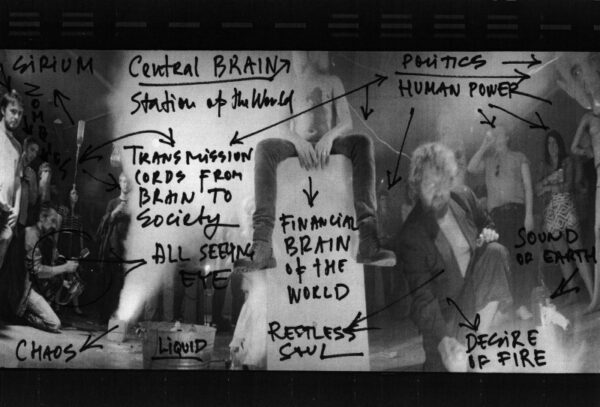 SIRIUM
ZOMBIES
Central BRAIN
Station of the World
POLITICS
HUMAN POWER
TRANSMISSION
CORDS FROM
BRAIN TO
Society
ALL SEEING
EYE
FINANCIAL
BRAIN
Of the
WORLD
SOUND
OF EARTH
CHAOS
LIQUID
RESTLESS
SOUL
DESIRE
OF FIRE